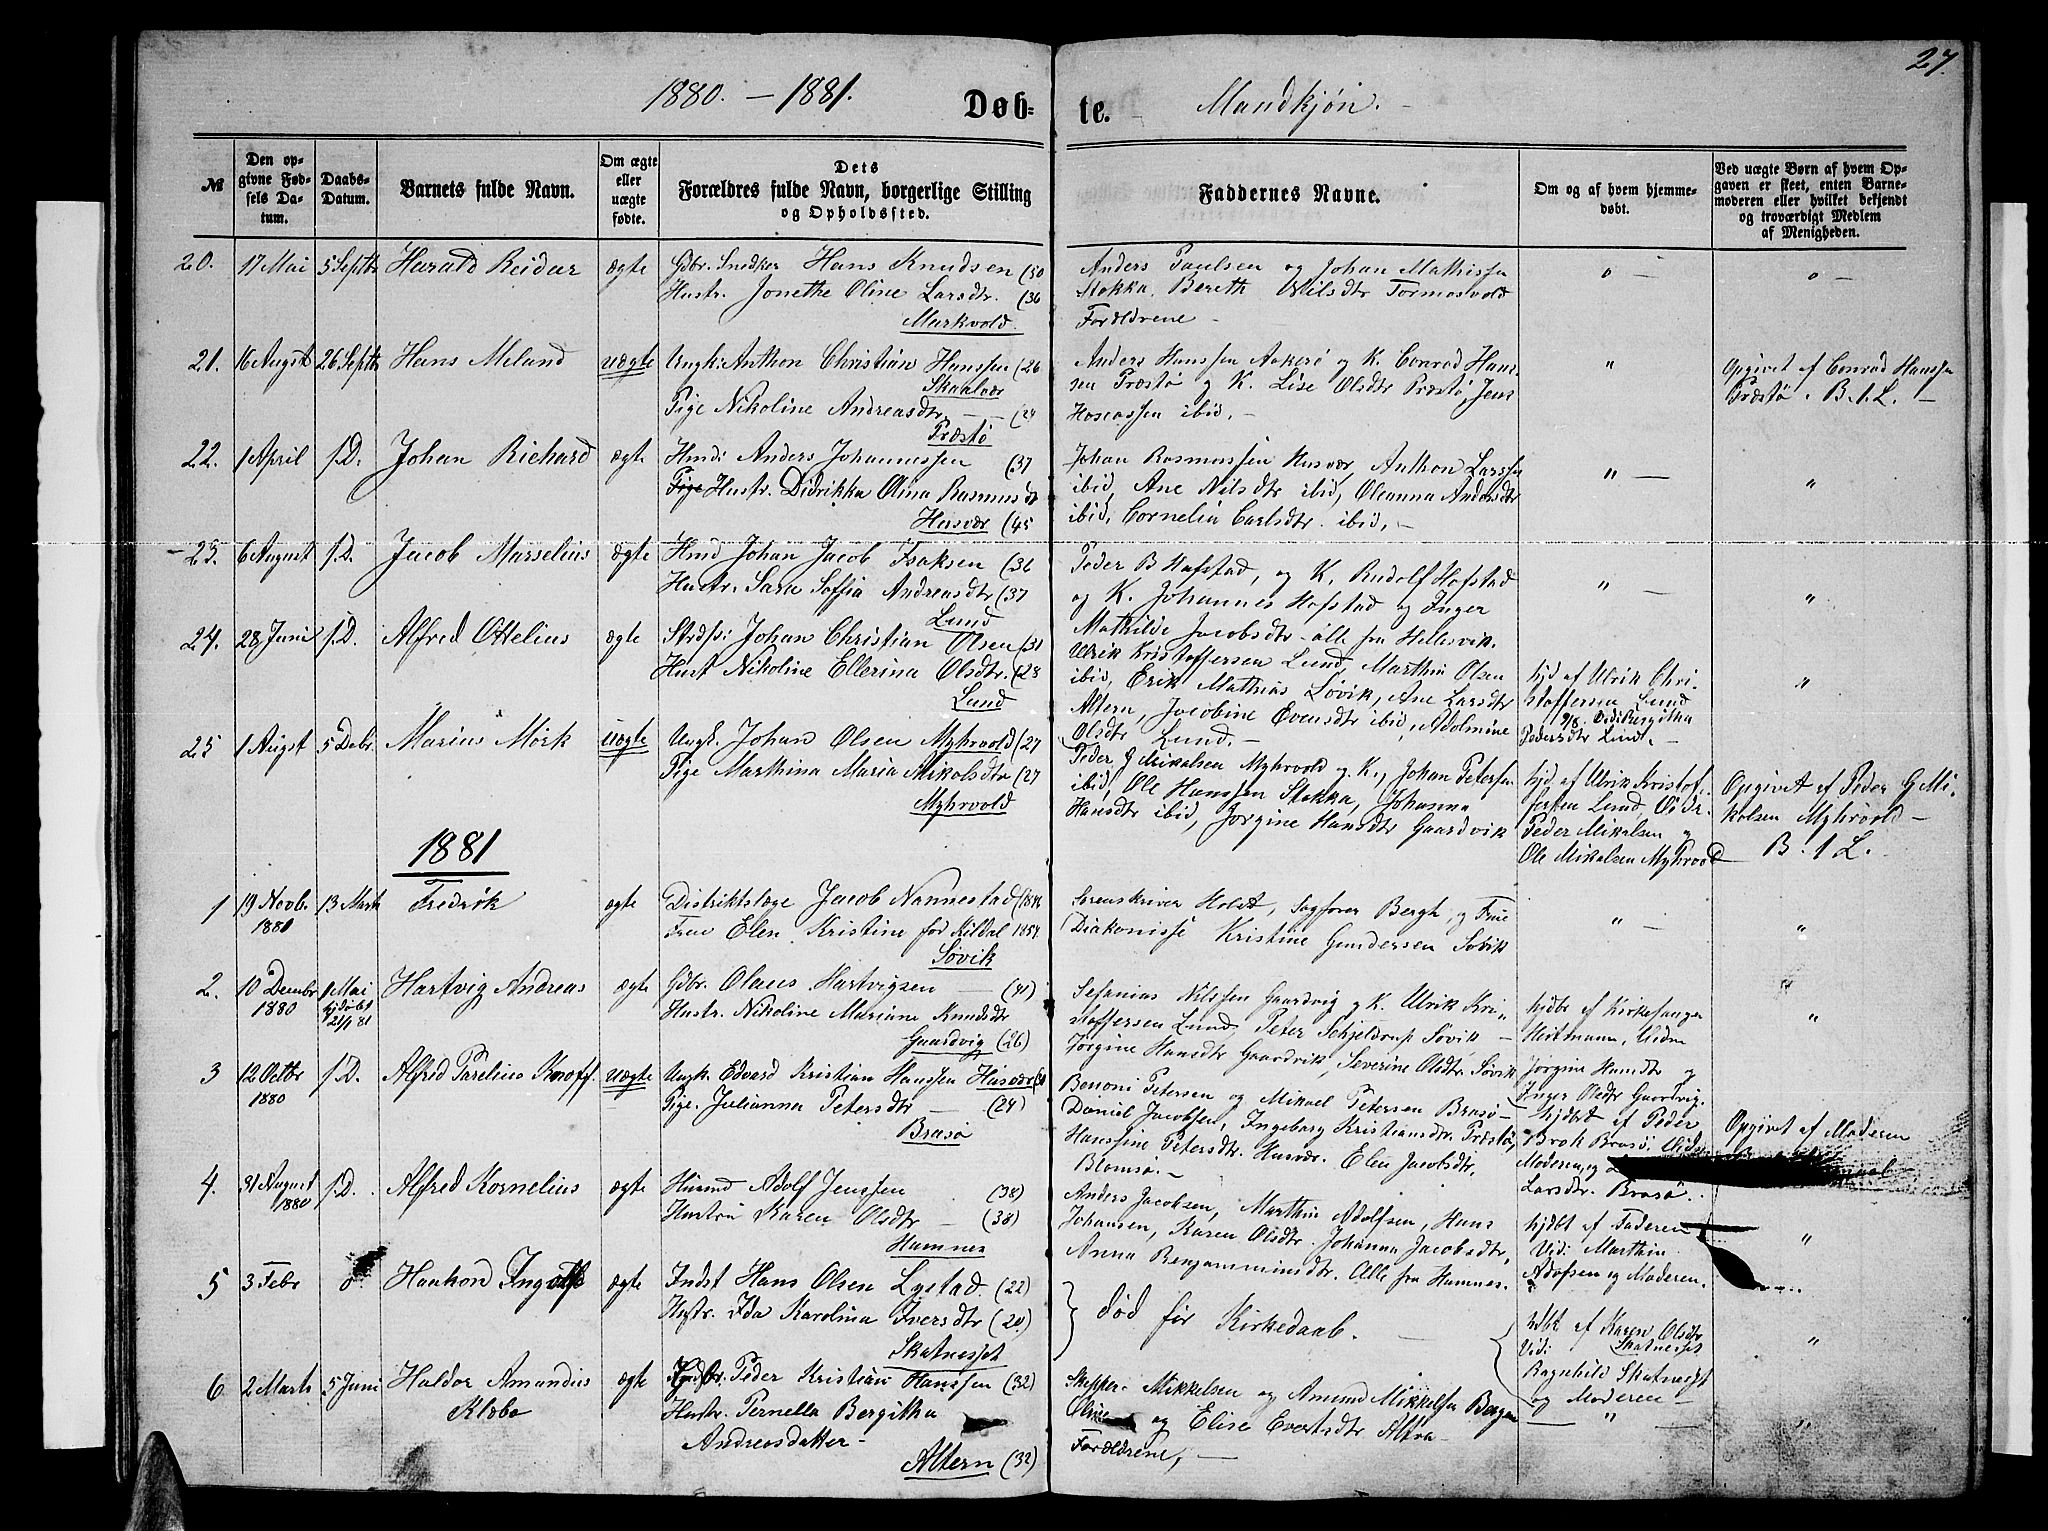 27.
1880. — 1881.
Døb=
te.
Mandkjøn.
№
Den op-
givne Fød-
sels Da-
tum.
Daabs-
Datum.
Barnets fulde Navn.
Om ægte
eller
uægte
fødte.
Dets
Forældres fulde Navn, borgerlige Stilling
og Opholdssted.
Faddernes Navne.
Om og af hvem hjemme-
døbt.
Ved uægte Børn af hvem Op-
gaven er skeet, enten Barne-
moderen eller hvilket bekjendt
og troværdigt Medlem
af Menigheden.
20. 17 Mai 5 Septbr Harald Reidar ægte Gdbr. Snedker Hans Knudsen (30
Hustr. Jonethe Oline Larsdtr. (36
Markvold
Anders Paulsen og Johan Mathissen
Stokka, Bereth Nilsdtr Tormosvold
Forældrene —
21. 16 Augst 26 Septbr Hans Meland uægte Ungk: Anthon Christian Hanssen (26
Skaalvær
Pige Nikoline Andreasdtr. — (24
Præstø
Anders Hanssen Aakerø og K. Conrad Hans-
sen Præstø og K. Lise Olsdtr Præstø, Jens
Hoseassen ibid. —
Opgivet af Conrad Hanssen
Præstø. B. 1. L. —
22. 1 April s.D. Johan Richard ægte Hmd: Anders Johannessen (37
Pige Hustr. Didrikka Olina Rasmusdtr
Husvær (45
Johan Rasmussen Husvær, Anthon Larssen
ibid, Ane Nilsdtr ibid, Oleanna Andersdtr
ibid, Cornelia Carlsdtr. ibid, —
23. 6 August s.D. Jacob Marselius ægte Hmd Johan Jacob Isaksen (36
Hustr. Sara Soffia Andreasdtr (37
Lund
Peder B Hofstad, og K, Rudolf Hofstad
og K. Johannes Hofstad og Inger
Mathilde Jacobsdtr alle fra Hellesvik.
24. 28 Juni s.D. Alfred Ottelius ægte Strdfs: Johan Christian Olsen (31
Hust Nikoline Ellerina Olsdtr. (28
Lund
Ulrik Kristoffersen Lund, Marthin Olsen
ibid, Erik Mathias Søvik, Ane Larsdtr
Altern, Jacobine Evensdtr ibid, Adolmine
Olsdtr Lund. —
hjd af Ulrik Chri-
stoffersen Lund
9/8. Vid: Bergitha
Pedersdtr Lund. —
25 1 Augst 5 Debr Marius Mörk uægte Ungk. Johan Olsen Myhrvold (27
Pige Marthina Maria Mikalsdtr (27
Myhrvold
Peder G Mikalsen Myhrvold og K., Johan Petersen
ibid, Ole Hanssen Stokka, Johanna
Hansdtr ibid, Jørgine Hansdtr Gaardvik
hjd af Ulrik Kristof-
fersen Lund Vidr.
Peder Mikalsen og
Ole Mikalsen Myhrvold
Opgivet af Peder G Mi-
kalsen Myhrvold —
B. 1 L.
1881
1 19 Novb. 1880 13 Marts Fredrik ægte Distriktslæge Jacob Nannestad (1844
Frue Elen Kristine fød Kildal 1854.
Søvik
Sorenskriver Holst, Sagfører Bergh, og Frue
Diakonisse Kristine Gundersen Søvik
2. 10 Decembr 1880 1 Mai
hjdøbt
21/1 81 Hartvig Andreas ægte Gdbr. Olaus Hartvigsen — (41)
Hustr. Nikoline Mariane Knudsdtr
Gaardvig (26)
Sefanias Nilssen Gaardvig og K. Ulrik Kri-
stoffersen Lund, Peter Schjelderup Søvik —
Jørgine Hansdtr Gaardvik, Severine Olsdtr. Søvik
hjdbt af Kirkesanger
Heitmann, Vidn
Jørgine Hansdtr og
Inger Olsdtr Gaardvig.
3 12 Octbr 1880 s.D. Alfred Parelius Knoff. uægte Ungk. Edvard Kristian Hanssen Husvær
Pige. Julianna Petersdtr — (24)
Brasø
Benoni Petersen og Mikael Petersen Brasø —
Daniel Jacobsen, Ingeborg Kristiansdtr. Præstø,
Hansine Petersdtr. Husvær. Elen Jacobsdtr.
Blomsø. —
hjdbt af Peder
Brok Brasø. Vidn
Moderen, og
Larsdtr. Brasø.
Opgivet af Moderen
4. 31 August 1880 s.D. Alfred Kornelius ægte Husmd Adolf Jenssen (38)
Hustru Karen Olsdtr — (38)
Hamnes
Anders Jacobsen, Marthin Adolfsen, Hans
Johansen, Karen Olsdtr. Johanna Jacobsdtr,
Anna Benjaminsdtr. Alle fra Hamnes.
hjdbt af Faderen
Vid: Marthin
Adolfsen og Moderen.
5 3 Febr Haakon Ingolf ægte Indst Hans Olsen Lystad. (22)
Hustr. Ida Karolina Iversdtr (20)
Skatnesset
død før Kirkedaab. —
hdbt af Karen Olsdtr
Vid: Skatnesset
Ragnhild Skatnesset
og Moderen —
6. 2 Marts 5 Juni Haldor Amandus
Klæbo ægte Gdbr. Peder Kristian Hanssen (32)
Hustr. Pernella Bergitha
Andreasdatter —
Altern (32)
Skipper. Mikkelsen og Amund Mikkelsen Bergen
Oline og Elise Evertsdtr Altra
Forældrene, —